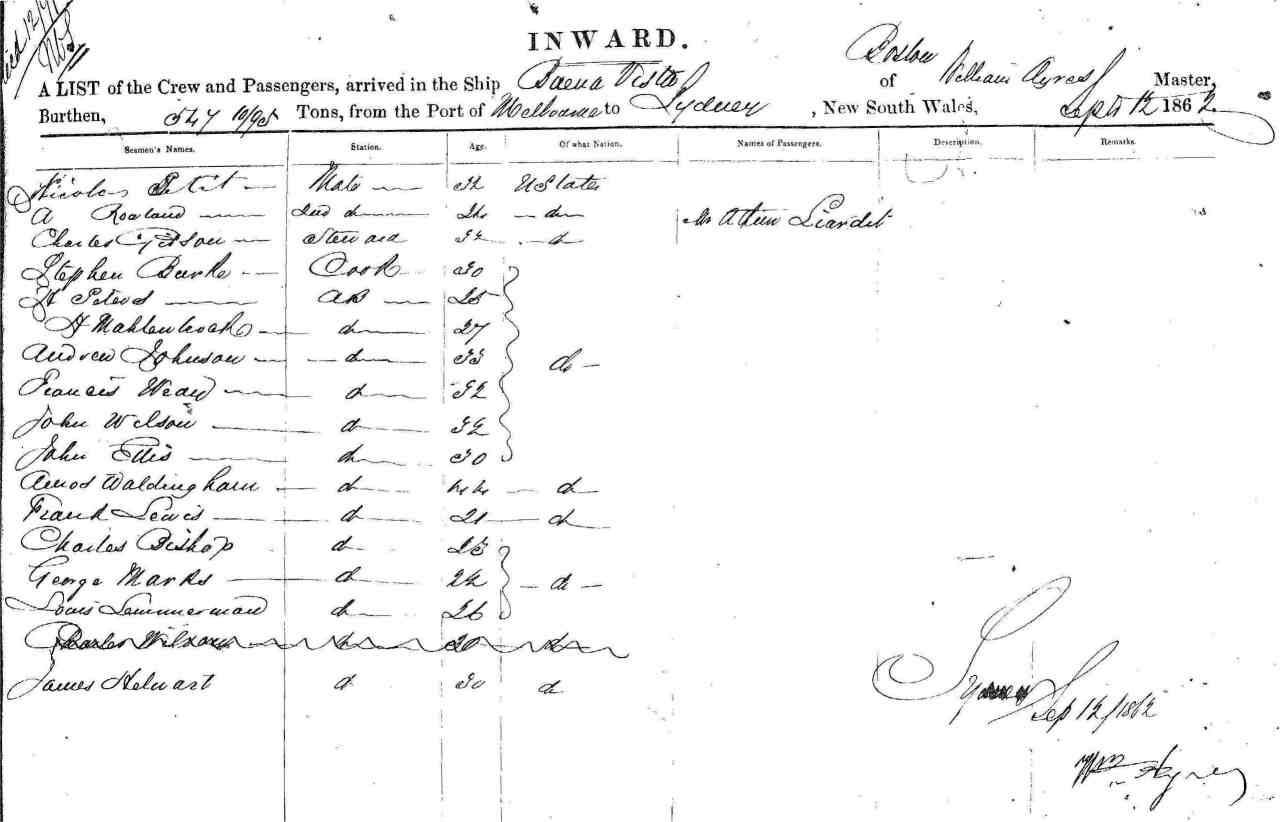 INWARD.
A LIST of the Crew and Passengers, arrived in the Ship Buena Vista of Boston William Ayres Master,
Burthen, 547 10/95 Tons, from the Port of Melbourne to Sydney, New South Wales, Sept 12 1862
Seamen's Names. Station. Age. Of what Nation. Names of Passengers. Description. Remarks.
Nicolas Petit Mate 32 U States
A Rowland 2nd do do Mr Liardet
Charles Steward 32 do
Stephen Burke Cook 30
Peters AB 25
H do 27
Andrew Johnson do 33 do
Francis do 32
John Wilson do 32
John Ellis do 30
Amos Waldingham do 44 do
Frank Lewis do 21 do
Charles Bishop do 25
George Marks do 22 do
Louis Lemmerman do 26
Charles do 30 do
James Stewart do 30 do
Sydney
Sep 12/1862
Wm Ayres